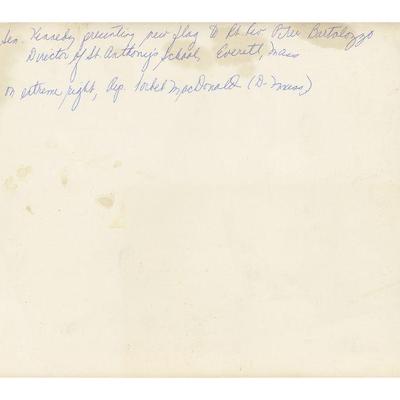 Sen. Kennedy presenting new flag to Rt. Rev Peter Bertolozzo
Director of St. Anthony's School, Everett, Mass
on extreme right, Rep. Torbet MacDonald (D-Mass)